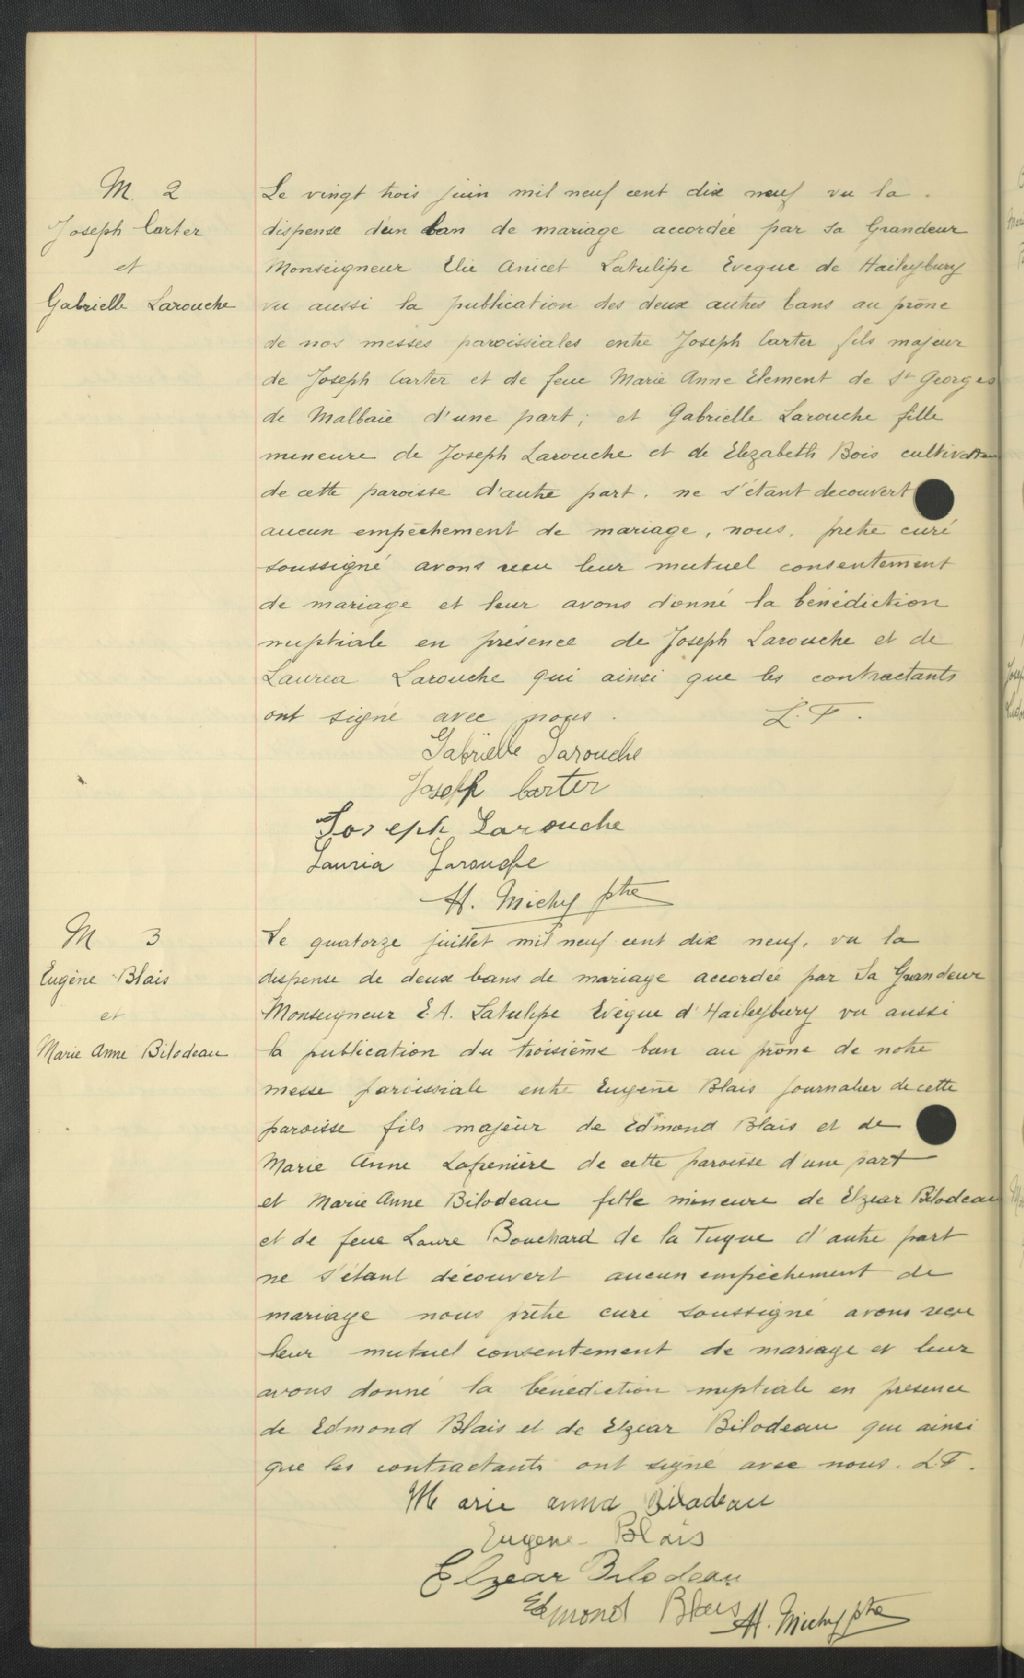 M. 2
Joseph Carter
et
Gabrielle Larouche
Le vingt trois juin mil neuf cent dix neuf vu la
dispense d'un ban de mariage accordée par sa Grandeur
Monseigneur Elie Anicet Latulipe Eveque de Haileybury
vu aussi la publication des deux autres bans au prône
de nos messes paroissiales entre Joseph Carter fils majeur
de Joseph Carter et de feue Marie Anne Element de St Georges
de Malbaie d'une part; et Gabrielle Larouche fille
mineure de Joseph Larouche et de Elizabeth Bois cultivateur
de cette paroisse d'autre part. ne s'étant decouvert
aucun empêchement de mariage, nous, prêtre curé
soussigné avons recu leur mutuel consentement
de mariage et leur avons donné la bénédiction
nuptiale en présence de Joseph Larouche et de
Lauria Larouche qui ainsi que les contractants
ont signé avec nous. L. F.
Gabrielle Larouche
Joseph Carter
Joseph Larouche
Lauria Larouche
H. Michy ptre
M 3
Eugène Blais
et
Marie Anne Bilodeau
Le quatorze juillet mil neuf cent dix neuf, vu la
dispense de deux bans de mariage accordée par Sa Grandeur
Monseigneur E. A. Latulipe Evêque d'Haileybury vu aussi
la publication du troisième ban au prône de notre
messe paroissiale entre Eugène Blais journalier de cette
paroisse fils majeur de Edmond Blais et de
Marie Anne Lafrenière de cette paroisse d'une part
et Marie Anne Bilodeau fille mineure de Elzear Bilodeau
et de feue Laure Bouchard de la Tuque d'autre part
ne s'étant découvert aucun empêchement de
mariage nous prêtre curé soussigné avons recu
leur mutuel consentement de mariage et leur
avons donné la bénédiction nuptiale en presence
de Edmond Blais et de Elzear Bilodeau qui ainsi
que les contractants ont signé avec nous. L F.
Marie anna Biladeau
Eugene Blais
Elzear Bilodeau
Edmond Blais
H. Michy ptre